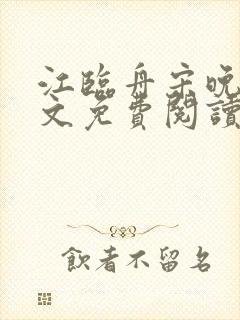 江臨舟宋晚
文免費閱讀
飲者不留名